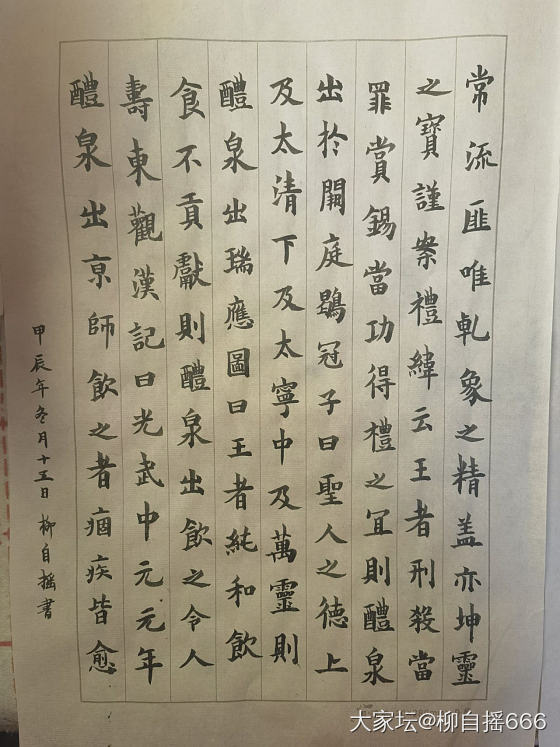 常流匪唯乹象之精盖亦坤靈
之寶謹案禮緯云王者刑殺當
罪賞錫當功得禮之宜則醴泉
出於闕庭鶡冠子曰聖人之德上
及太清下及太寧中及萬靈則
醴泉出瑞應圖曰王者純和飲
食不貢獻則醴泉出飲之令人
壽東觀漢記曰光武中元元年
醴泉出京師飲之者痼疾皆愈
甲辰年冬月十五日 柳自摇書
大家坛@柳自摇666